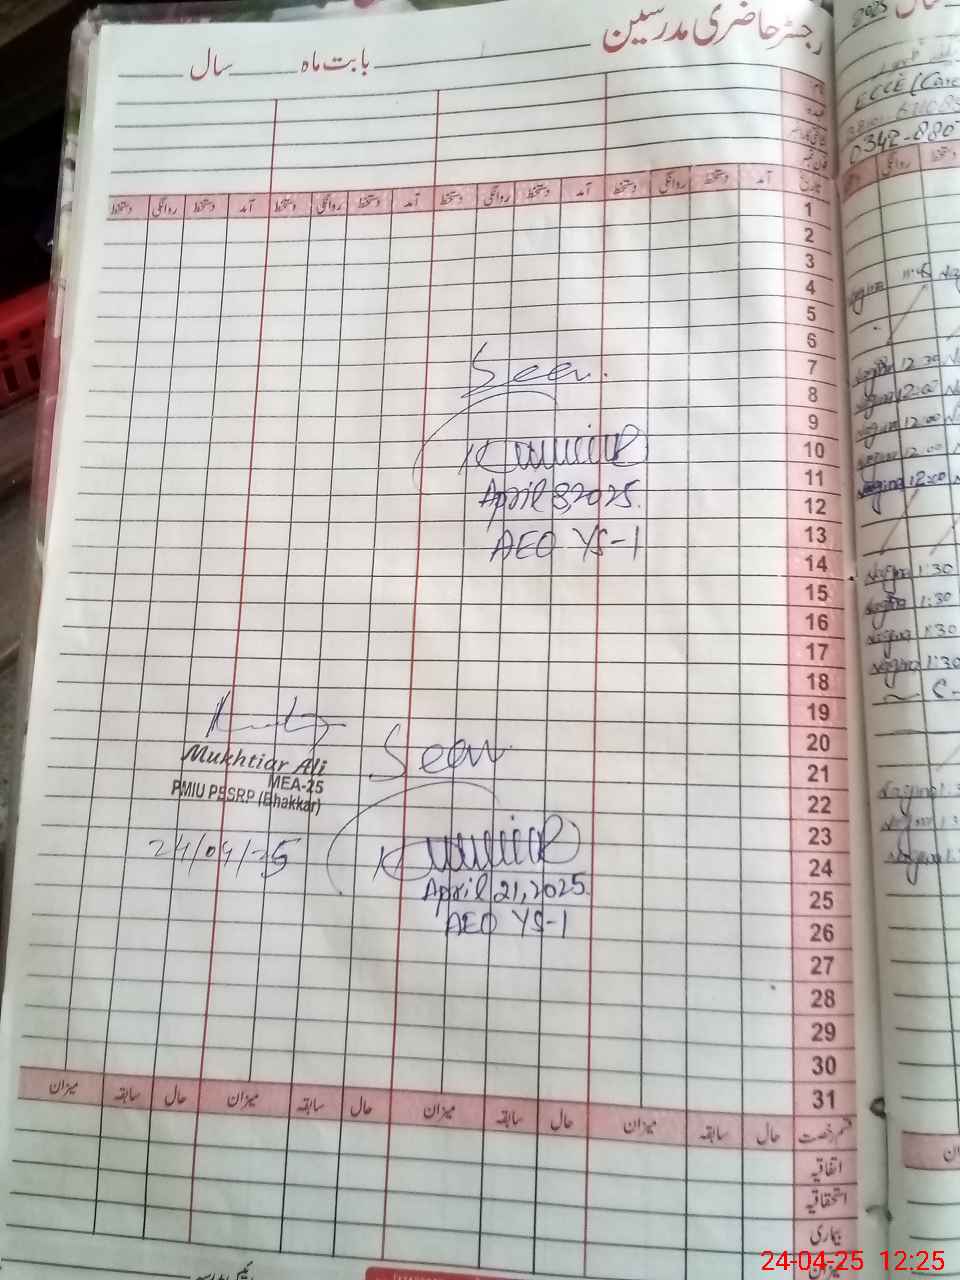 رجسٹر حاضری مدرسین
بابت ماہ سال
نام
عہدہ
تاریخ آمد دستخط روانگی دستخط آمد دستخط روانگی دستخط آمد دستخط روانگی دستخط آمد دستخط روانگی دستخط
1
2
3
4
5
6
7
8
9
10
11
12
13
14
15
16
17
18
19
20
21
22
23
24
25
26
27
28
29
30
31
Seen.
April 8, 2025.
AEO YS-1
Mukhtiar Ali
MEA-25
PMIU PESRP (Bhakkar)
24/04/25
Seen
April 21, 2025
AEO YS-1
قسم رخصت حال سابقہ میزان حال سابقہ میزان حال سابقہ میزان حال سابقہ میزان
اتفاقیہ
استحقاقیہ
بیماری
میزان
2025 سال
ECCE (Care
0342-880
روانگی دستخط
Nagina 11:45
Nagina 12:30
Nagina 12:00
Nagina 12:00
Nagina 12:00
Nagina 12:00
Nagina 1:30
Nagina 1:30
Nagina 1:30
Nagina 1:30
Nagina 1:3
Nagina 1:3
Nagina
24-04-25 12:25